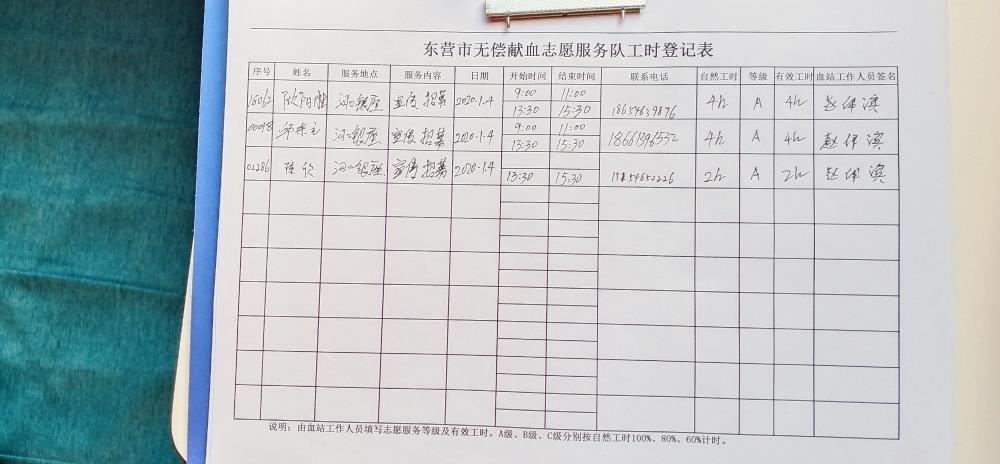 东营市无偿献血志愿服务队工时登记表
序号 姓名 服务地点 服务内容 日期 开始时间 结束时间 联系电话 自然工时 等级 有效工时 血站工作人员签名
18062 河口银座 宣传招募 2020.1.4 9:00 11:00 13:30 15:30 18654639876 4h A 4h 赵伟滨
00098 河口银座 宣传招募 2020.1.4 9:00 11:00 13:30 15:30 18661396532 4h A 4h 赵伟滨
02286 陈欣 河口银座 宣传招募 2020.1.4 13:30 15:30 2h A 2h 赵伟滨
说明：由血站工作人员填写志愿服务等级及有效工时。A级、B级、C级分别按自然工时100%、80%、60%计时。